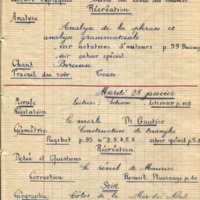 Récréation
Analyse Analyse de la phrase et
analyse grammaticale
voir notations d'auteurs p. 99
voir cahier spécial
Chant Berceuse
Travail du soir
Mardi 25 janvier
Morale Lecture : Edison Littérair p. 119
Récitation
le merle Th Gautier
Géométrie Construction de triangles
p. 95 n° 2 3 4 5 6 cahier spécial p. 5
Récréation
Dictée et Questions
le réveil de Maurice
Correction
Soir
Géographie Côtes de la Mer du Nord